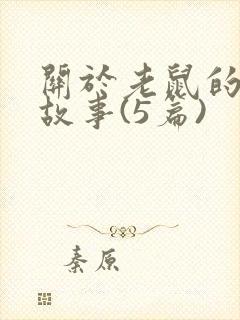 關於老鼠的
故事(5篇)
秦原